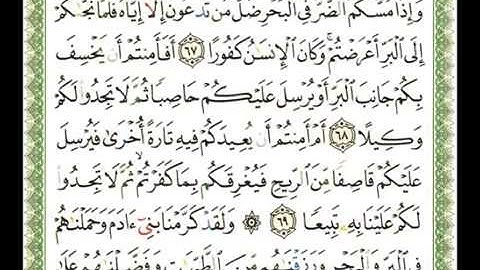 وَإِذَا مَسَّكُمُ ٱلضُّرُّ فِي ٱلْبَحْرِ ضَلَّ مَن تَدْعُونَ إِلَّآ إِيَّاهُ فَلَمَّا نَجَّىٰكُمْ
إِلَى ٱلْبَرِّ أَعْرَضْتُمْ وَكَانَ ٱلْإِنسَٰنُ كَفُورًا ٦٧ أَفَأَمِنتُمْ أَن يَخْسِفَ
بِكُمْ جَانِبَ ٱلْبَرِّ أَوْ يُرْسِلَ عَلَيْكُمْ حَاصِبًا ثُمَّ لَا تَجِدُوا۟ لَكُمْ
وَكِيلًا ٦٨ أَمْ أَمِنتُمْ أَن يُعِيدَكُمْ فِيهِ تَارَةً أُخْرَىٰ فَيُرْسِلَ
عَلَيْكُمْ قَاصِفًا مِّنَ ٱلرِّيحِ فَيُغْرِقَكُم بِمَا كَفَرْتُمْ ثُمَّ لَا تَجِدُوا۟
لَكُمْ عَلَيْنَا بِهِۦ تَبِيعًا ٦٩ ۞ وَلَقَدْ كَرَّمْنَا بَنِىٓ ءَادَمَ وَحَمَلْنَٰهُمْ
فِي ٱلْبَرِّ وَٱلْبَحْرِ وَرَزَقْنَٰهُم مِّنَ ٱلطَّيِّبَٰتِ وَفَضَّلْنَٰهُمْ عَلَىٰ